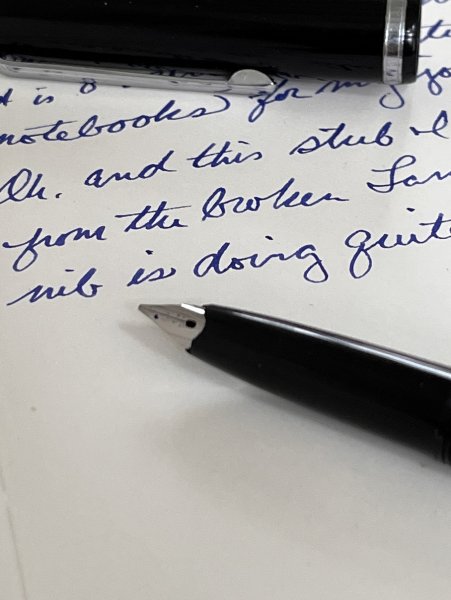 is 8
notebooks) for my
Oh. and this stub I
from the broken
nib is doing quite